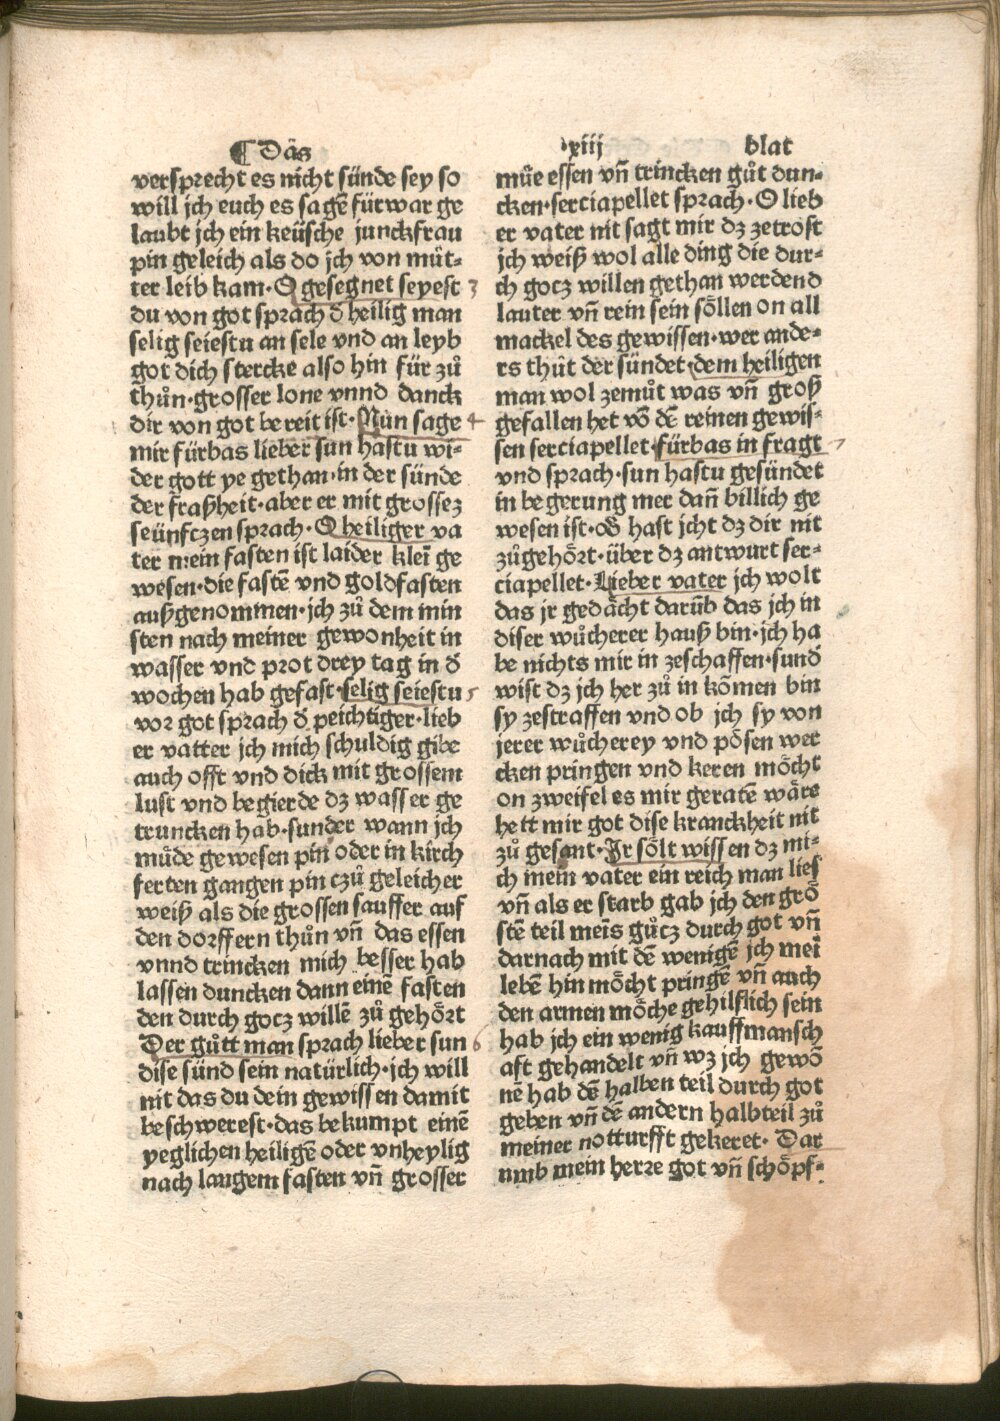 ¶ Das xiij blat
versprecht es nicht sünde sey so
will jch euch es sagẽ fürwar ge
laubt jch ein keüsche junckfrau
pin geleich als do jch von můt-
ter leib kam·O gesegnet seyest 3
du von got sprach d̕ heilig man
selig seiestu an sele vnd an leyb
got dich stercke also hin für zů
thůn·grosser lone vnnd danck
dir von got bereit ist·Nun sage 4
mir fürbas lieber sun hastu wi-
der gott ye gethan·in der sünde
der fraßheit·aber er mit grossez
seünfczen sprach·O heiliger va
ter mein fasten ist laider kleĩ ge
wesen·die fastẽ vnd goldfasten
außgenommen·jch zů dem min
sten nach meiner gewonheit in
wasser vnd prot drey tag in d̕
wochen hab gefast·selig seiestu 5
vor got sprach d̕ peichtiger·lieb
er vatter jch mich schuldig gibe
auch offt vnd dick mit grossem
lust vnd begierde dz wasser ge
truncken hab·sunder wann jch
müde gewesen pin oder in kirch
ferten gangen pin czů geleicher
weiß als die grossen sauffer auf
den dorffern thůn vñ das essen
vnnd trincken mich besser hab
lassen duncken dann einẽ fasten
den durch gocz willẽ zů gehört
Der gůtt man sprach lieber sun 6
dise sünd sein natürlich·jch will
nit das du dein gewissen damit
beschwerest·das bekumpt einẽ
yeglichen heiligẽ oder vnheylig
nach langem fasten vñ grosser
můe essen vñ trincken gůt dun-
cken·serciapellet sprach·O lieb
er vater nit sagt mir dz zetrost
jch weiß wol alle ding die dur-
ch gocz willen gethan werden d
lauter vñ rein sein söllen on all
mackel des gewissen·wer ande-
rs thůt der sündet·dem heiligen
man wol zemůt was vñ groß
gefallen het võ dẽ reinen gewis-
sen serciapellet·fürbas in fragt 7
vnd sprach·sun hastu gesündet
in begerung mer dañ billich ge
wesen ist·O hast jcht dz dir nit
zůgehört·über dz antwurt ser-
ciapellet·Lieber vater jch wolt
das jr gedächt darũb das jch in
diser wůcherer hauß bin·jch ha
be nichts mir in zeschaffen·sund̕
wist dz jch her zů in kõmen bin
sy zestraffen vnd ob jch sy von
jerer wůcherey vnd pösen wer
cken pringen vnd keren möcht
on zweifel es mir geratẽ wäre
hett mir got dise kranckheit nit
zů gesant·Jr sölt wissen dz mi-
ch mein vater ein reich man lies
vñ als er starb gab jch den grö
stẽ teil meĩs gůcz durch got vñ
darnach mit dẽ wenigẽ jch meĩ
lebẽ hin möcht pringẽ vñ auch
den armen möche gehilflich sein
hab jch ein wenig kauffmansch
aft gehandelt vñ wz jch gewõ
nẽ hab dẽ halben teil durch got
geben vñ dẽ andern halbteil zů
meiner notturfft gekeret· Dar
umb mein herre got vñ schöpf-